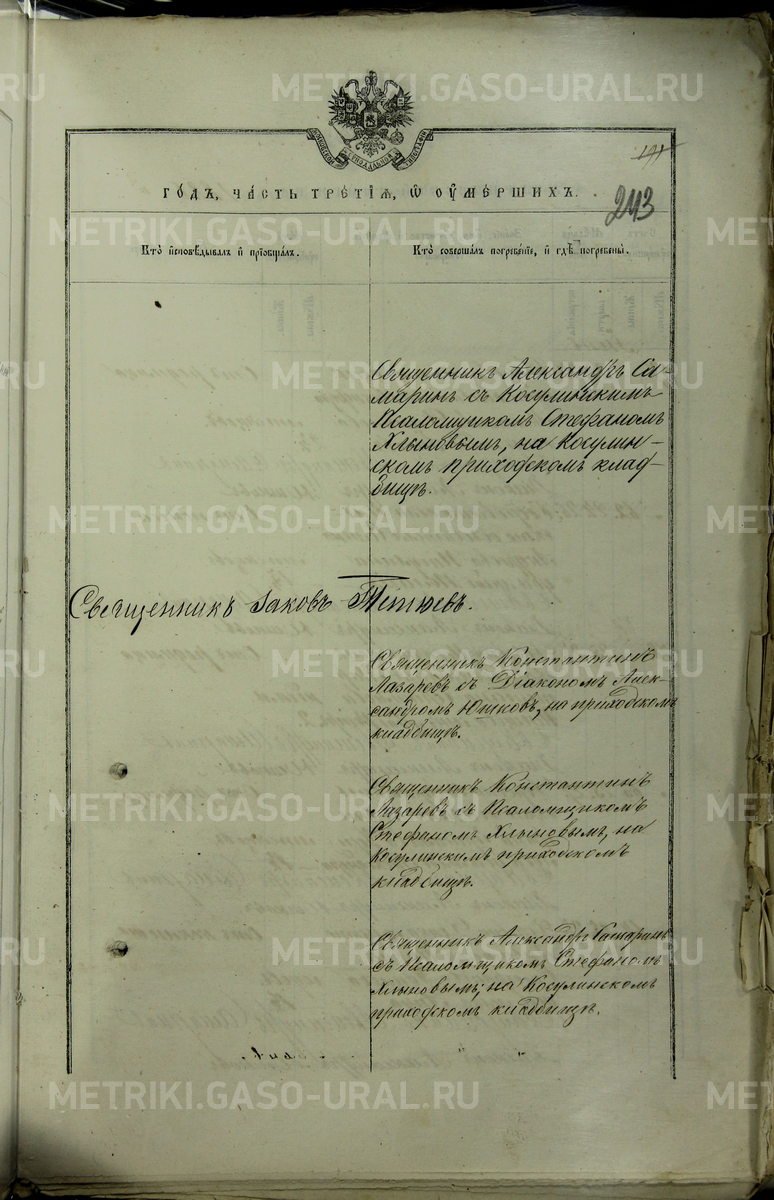 METRIKI.GASO-URAL.RU
191
243
СѴНОДАЛЬНОЙ ТИПОГРАФІИ
ГОДЪ, ЧАСТЬ ТРЕТІЯ, Ѡ ОУМЕРШИХЪ.
Кто исповѣдывалъ и пріобщалъ.
Кто совершалъ погребеніе, и гдѣ погребены.
Священникъ Александръ Са-
маринъ съ Косулинскимъ
Псаломщикомъ Стефаномъ
Хлыновымъ, на Косулин-
скомъ приходскомъ клад-
бищѣ.
Священникъ Іаковъ Тетюевъ.
Священникъ Константинъ
Лазаревъ съ Діакономъ Алек-
сандромъ Юшковъ, на приходскомъ
кладбищѣ.
Священникъ Константинъ
Лазаревъ съ Псаломщикомъ
Стефаномъ Хлыновымъ, на
Косулинскимъ приходскомъ
кладбищѣ.
Священникъ Александръ Самаринъ
съ Псаломщикомъ Стефаномъ
Хлыновымъ, на Косулинскомъ
приходскомъ кладбищѣ.